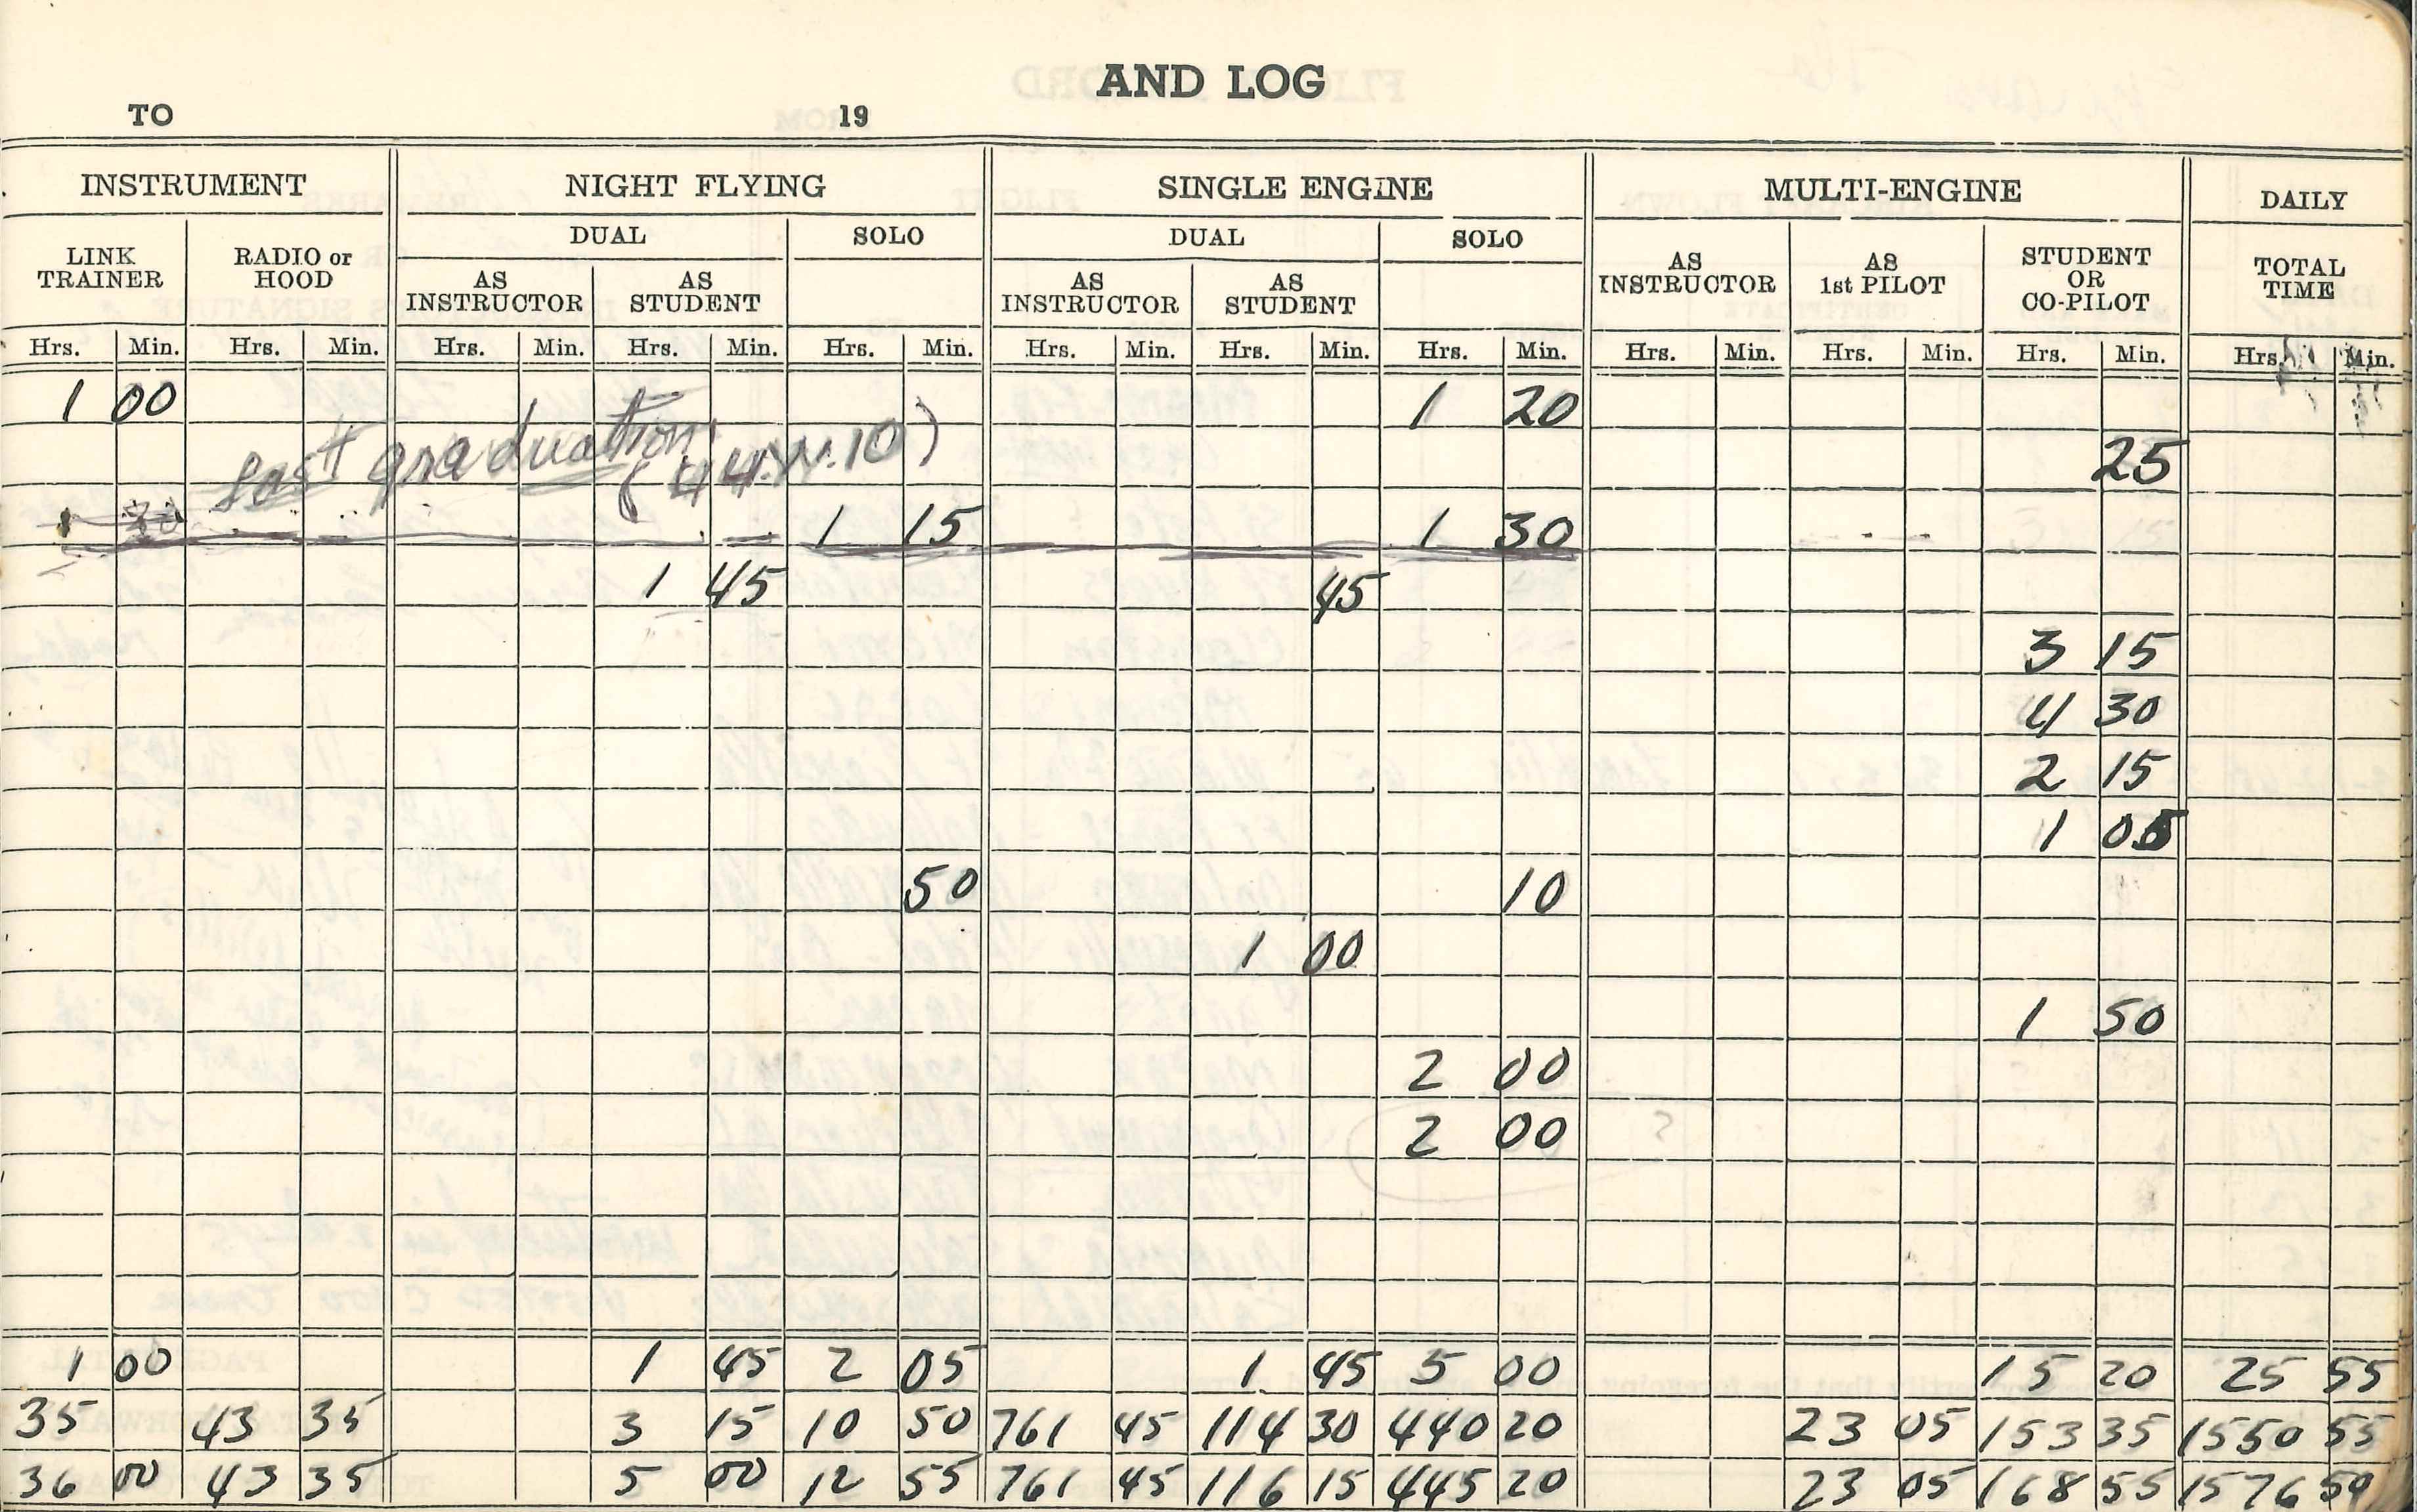 AND LOG
TO 19
INSTRUMENT NIGHT FLYING SINGLE ENGINE MULTI-ENGINE DAILY
DUAL SOLO DUAL SOLO
LINK TRAINER RADIO or HOOD AS INSTRUCTOR AS STUDENT AS INSTRUCTOR AS STUDENT AS INSTRUCTOR AS 1st PILOT STUDENT OR CO-PILOT TOTAL TIME
Hrs. Min. Hrs. Min. Hrs. Min. Hrs. Min. Hrs. Min. Hrs. Min. Hrs. Min. Hrs. Min. Hrs. Min. Hrs. Min. Hrs. Min. Hrs. Min.
1 00 1 20
last graduation 25
1 15 1 30
1 45 45
3 15
4 30
2 15
1 05
50 10
1 00
1 50
2 00
2 00
1 00 1 45 2 05 1 45 5 00 15 20 25 55
35 43 35 3 15 10 50 761 45 114 30 440 20 23 05 153 35 1550 55
36 00 43 35 5 00 12 55 761 45 116 15 445 20 23 05 168 55 1576 50